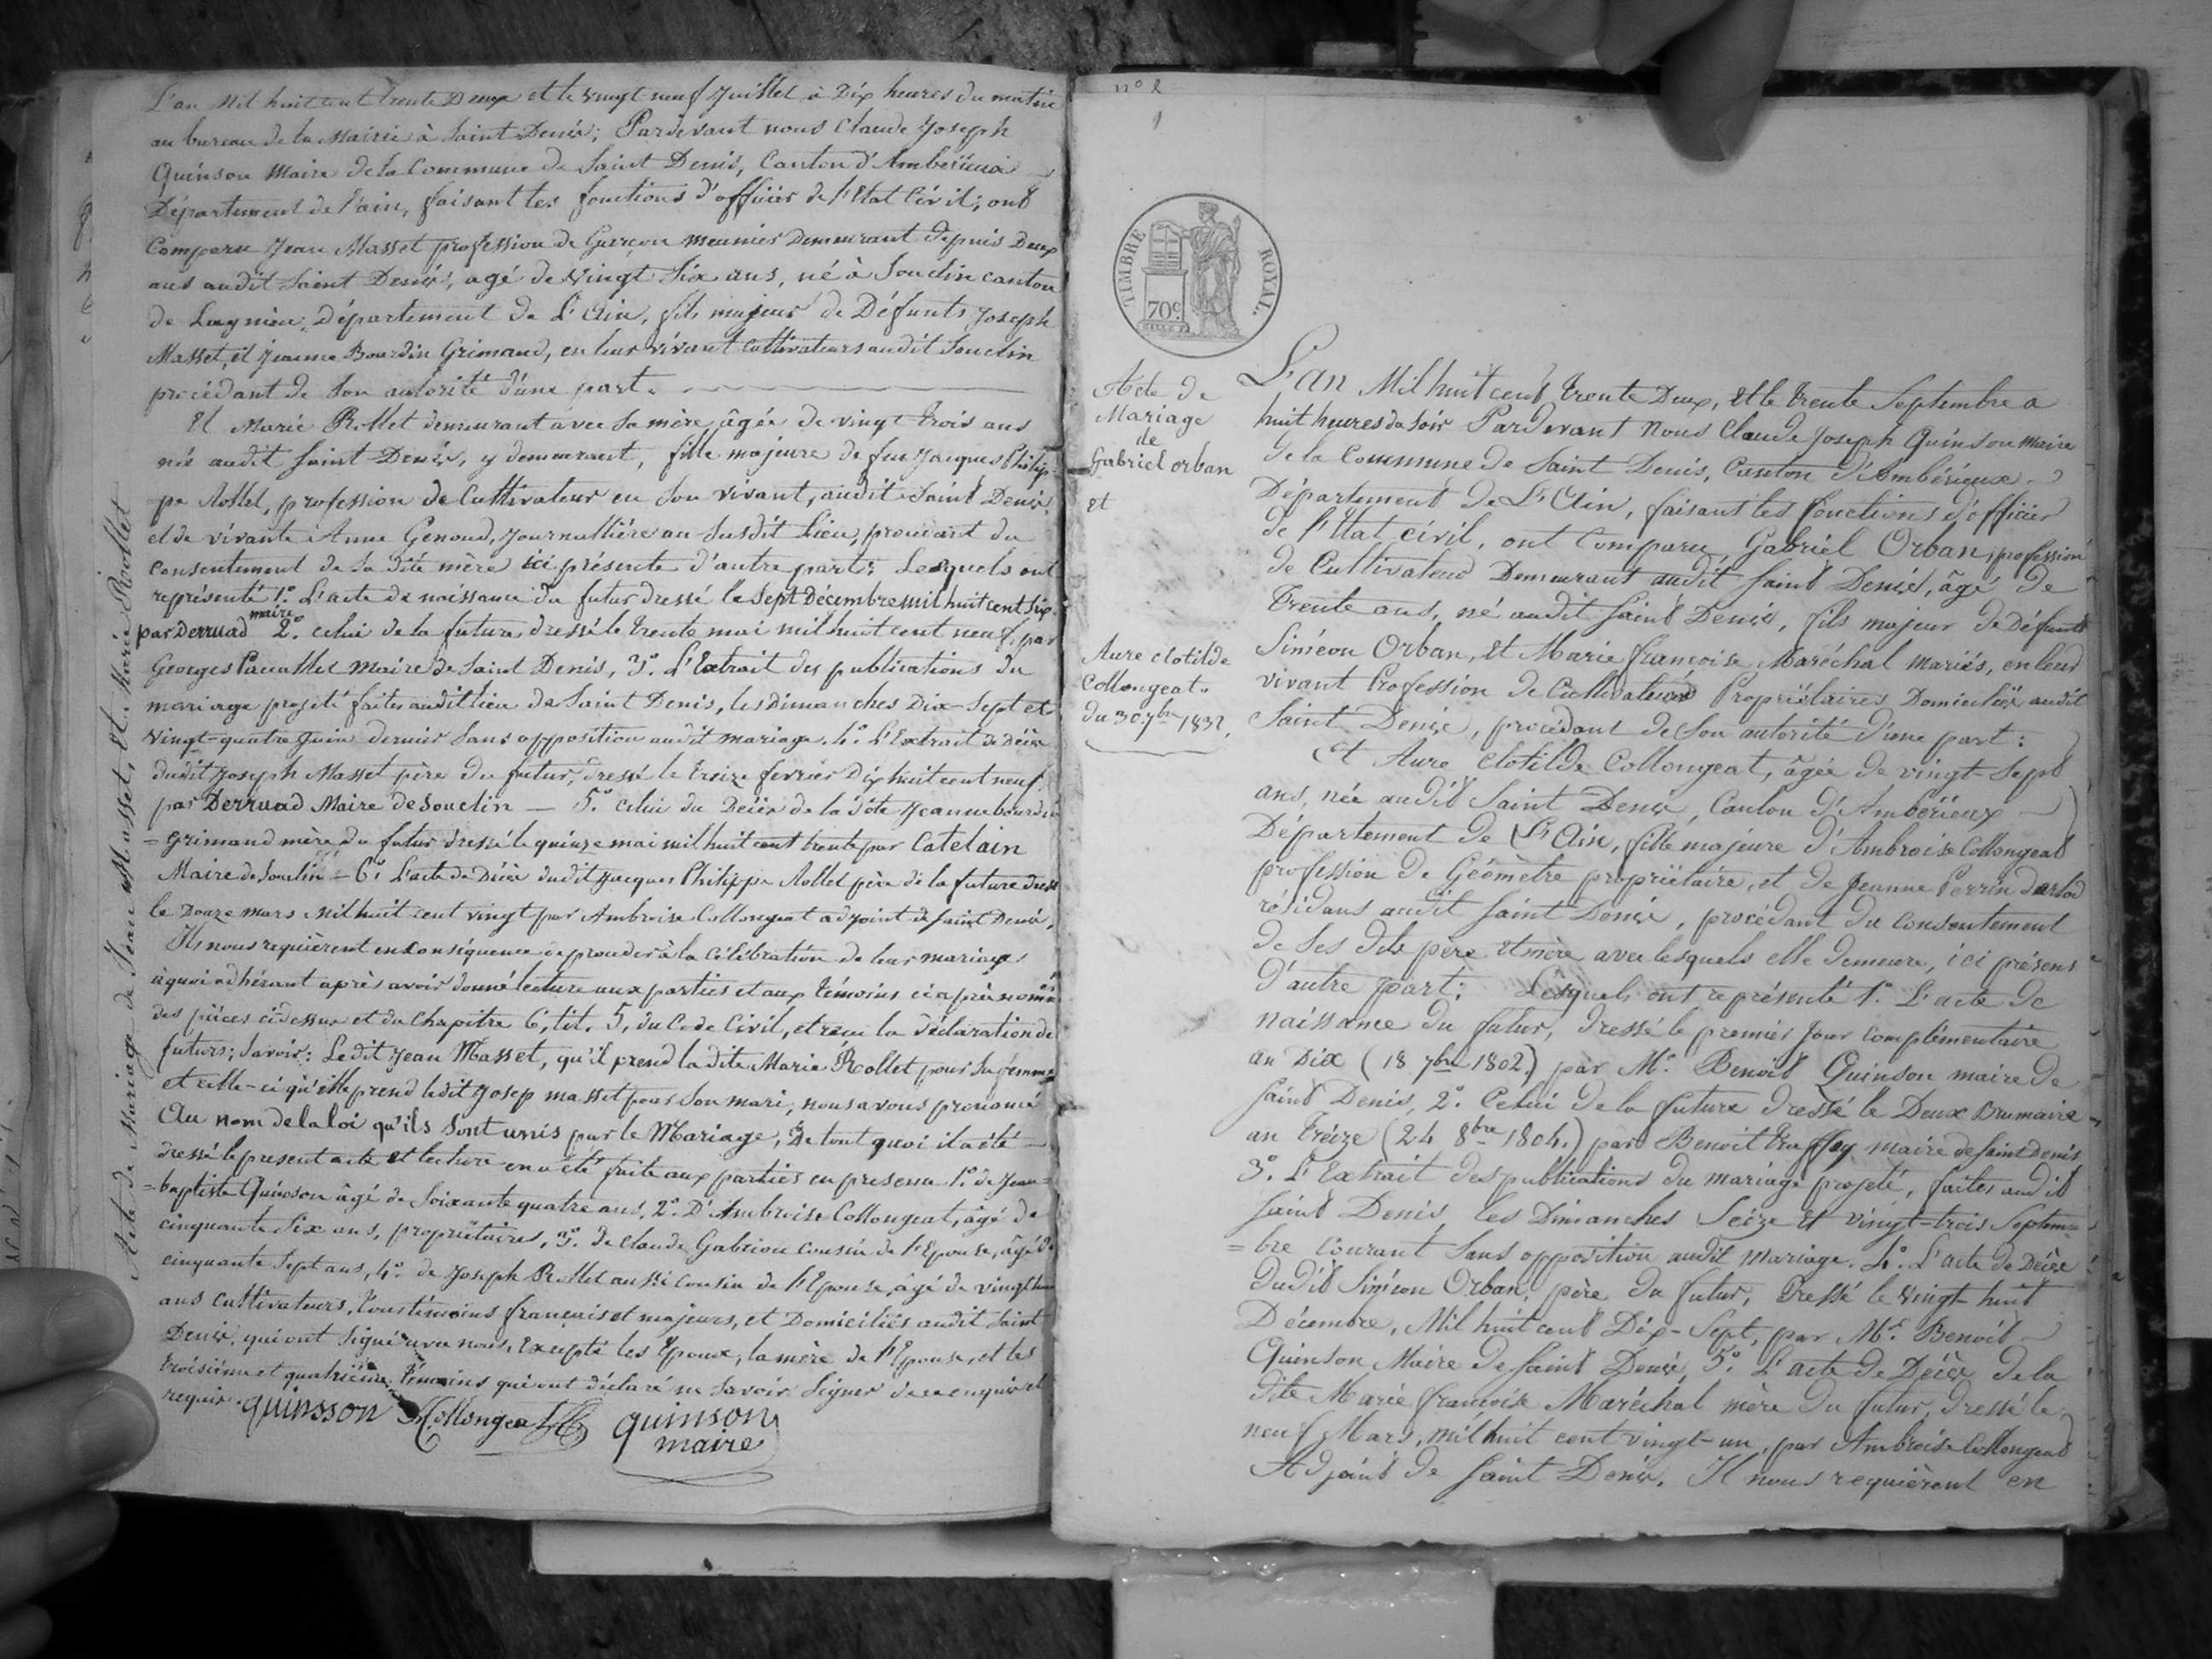 L'an Mil huit cent trente Deux et le vingt neuf Juillet à Dix heures du matin
au bureau de la Mairie à Saint Denis; Pardevant nous Claude Joseph
Quinson Maire de la Commune de Saint Denis, Canton d'Ambérieux
Département de l'ain, faisant les fonctions d'officier de l'Etat Civil; ont
Comparu Jean Masset profession de Garçon meunier Demeurant depuis Deux
ans audit Saint Denis, agé de vingt Six ans, né à Souclin canton
de Lagnieu, Département de L'Ain, fils majeur de Défunts Joseph
Masset, et Jeanne Bourdin Grimaud, en leur vivant Cultivateurs audit Souclin
procédant de Son autorité d'une part.
Et Marie Rollet demeurant avec Sa mère âgée de vingt trois ans
née audit Saint Denis, y demeurant, fille majeure de feu Jacques Philip-
pe Rollet, profession de Cultivateur en Son vivant, audit Saint Denis,
et de vivante Anne Genoud, Journallière au Susdit Lieu, procédant du
Consentement de Sa dite mère ici présente d'autre part; Lesquels ont
représenté 1.° L'acte de naissance du futur dressé le Sept Décembre mil huit cent Six
maire
par Derruad 2.° celui de la future dressé le trente mai mil huit cent neuf, par
Georges Pacuttet maire de Saint Denis, 3.° L'Extrait des publications du
mariage projeté faites audit lieu de Saint Denis, les dimanches Dix-Sept et
Vingt-quatre Juin dernier Sans opposition audit mariage. 4.° L'Extrait de Décès
dudit Joseph Masset père du futur, dressé le treize fevrier Dix huit cent neuf
par Derruad Maire de Souclin — 5.° celui du Décès de la dite Jeanne bourdin
= grimaud mère du futur dressé le quinze mai mil huit cent trente par Catelain
Maire de Souclin — 6.° L'acte de Décès dudit Jacques Philippe Rollet père de la future dressé
le Douze mars Mil huit cent vingt par Ambroise Collongeat adjoint de Saint Denis.
Ils nous requièrent en conséquence de proceder à la Célébration de leur mariage
à quoi adhérant après avoir donné lecture aux parties et aux témoins ci après nommés
des pièces ci dessus et du Chapitre 6, tit. 5, du Code Civil, et recu la déclaration de
futurs; Savoir: Ledit Jean Masset, qu'il prend ladite Marie Rollet pour Sa femme
et celle-ci qu'elle prend ledit Josep masset pour Son mari, nous avous prononcé
Au nom de la loi qu'ils Sont unis par le Mariage, De tout quoi il a été
dressé le present acte et lecture en a été faite aux parties en presence 1.° de Jean =
= baptiste Quinson âgé de Soixante quatre ans, 2.° D'Ambroise Collongeat, âgé de
cinquante Six ans, propriétaires, 3.° de Claude Gabriou Cousin de l'Epouse, âgé de
cinquante Sept ans, 4.° de Joseph Rollet aussi Cousin de l'Epouse, âgé de vingt
ans cultivateurs, tous témoins français et majeurs, et Domiciliés audit Saint
Denis, qui ont Signé avec nous, Excepté les Epoux, la mère de l'Epouse, et les
troisième et quatrième témoins qui ont déclaré ne Savoir Signer de ce enquis et
requis. quinsson A Collongeat quinson
maire
Acte de Mariage de Jean Masset, et Marie Roollet
n° 2
1
TIMBRE ROYAL.
70c
Acte de
Mariage
de
Gabriel orban
et
Aure clotilde
Collongeat.
du 30 7bre 1832.
L'an Mil huit cent trente Deux, et le trente Septembre a
huit heures du Soir Pardevant Nous Claude Joseph Quinson maire
de la Commune de Saint Denis, Canton d'Ambérieux
Département de L'Ain, faisant les fonctions d'officier
de l'Etat civil, ont Comparu, Gabriel Orban, profession
de Cultivateur Demeurant audit Saint Denis, âgé de
Trente ans, né audit Saint Denis, fils majeur de Défunts
Siméon Orban, et Marie françoise Maréchal mariés, en leur
vivant Profession de Cultivateurs Propriétaires Domiciliés audit
Saint Denis, procédant de Son autorité d'une part:
Et Aure Clotilde Collongeat, âgée de vingt-Sept
ans, née audit Saint Denis, Canton d'Ambérieux
Département de L'Ain, fille majeure d'Ambroise Collongeat
profession de Géomètre propriétaire, et de Jeanne Perrin Darlod
résidans audit Saint Denis, procédant du consentement
de Ses dits père et mère avec lesquels elle demeure, ici présens
d'autre part: Lesquels ont représenté 1.° L'acte de
naissance du futur, dressé le premier Jour complémentaire
an Dix (18 7bre 1802) par Mr. Benoit Quinson maire de
Saint Denis, 2.° Celui de la future dressé le Deux Brumaire
an treize (24 8bre 1804.) par Benoit truffey maire de Saint Denis
3.° L'Extrait des publications du mariage projeté, faites audit
Saint Denis, les Dimanches Seize et vingt-trois Septem=
=bre courant Sans opposition audit mariage. 4.° L'acte de Décès
dudit Siméon Orban, père du futur, dressé le vingt huit
Décembre, Mil huit cent Dix-Sept, par Mr. Benoit
Quinson Maire de Saint Denis, 5.° L'acte de Décès de la
dite Marie françoise Maréchal mère du futur, dressé le
neuf Mars, mil huit cent vingt-un, par Ambroise Collongeat
Adjoint de Saint Denis. Il nous requièrent en